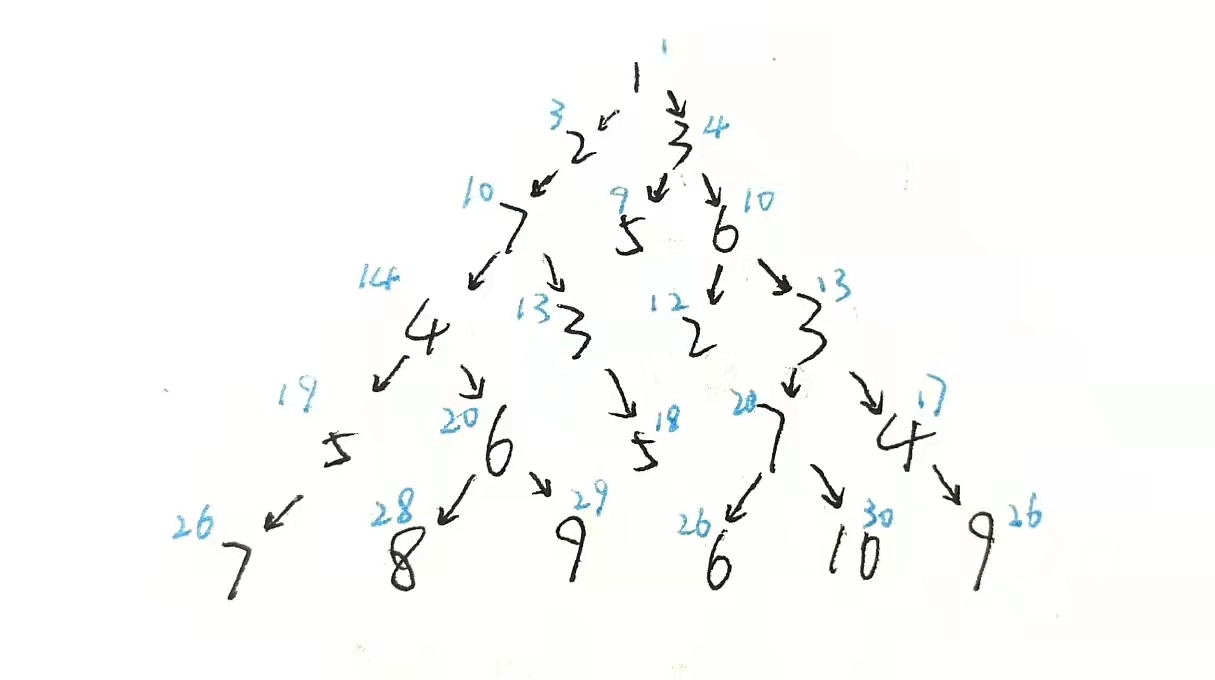 1
1
3 4
2 3
10 9 10
7 5 6
14 13 12 13
4 3 2 3
19 20 18 20 17
5 6 5 7 4
26 28 29 26 30 26
7 8 9 6 10 9